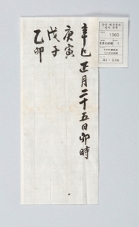 辛巳正月二十五日卯時
庚寅
戊子
乙卯